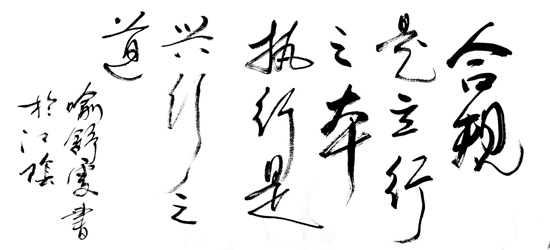 合规
是立行
之本
执行是
兴行之
道
喻舒雯书
於江阴